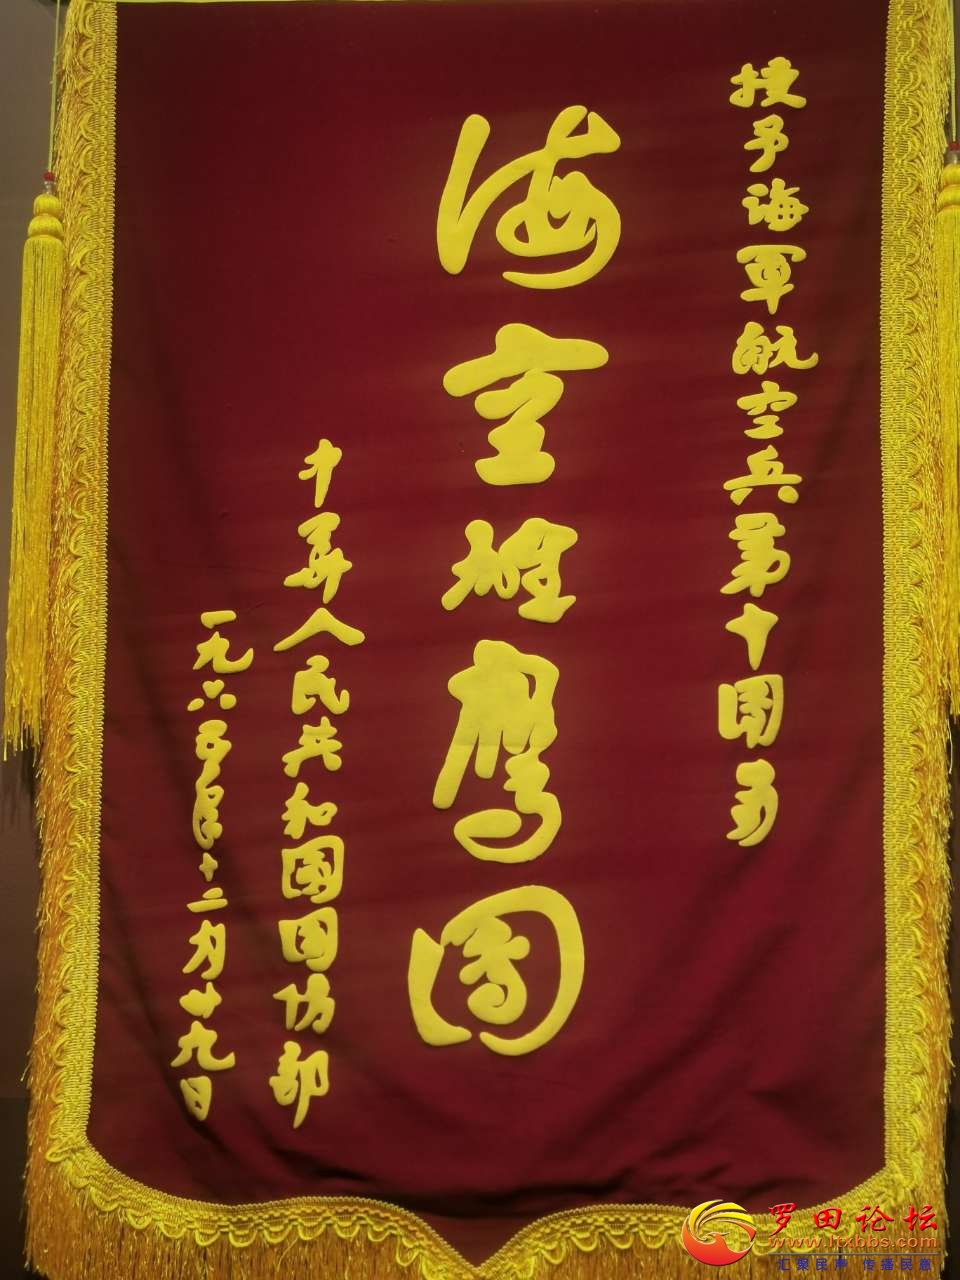 授予海軍航空兵第十團为
海空雄鹰團
中華人民共和国国防部
一九六五年十二月廿九日
罗田论坛
www.ltxbbs.com
汇聚民声 传播民意